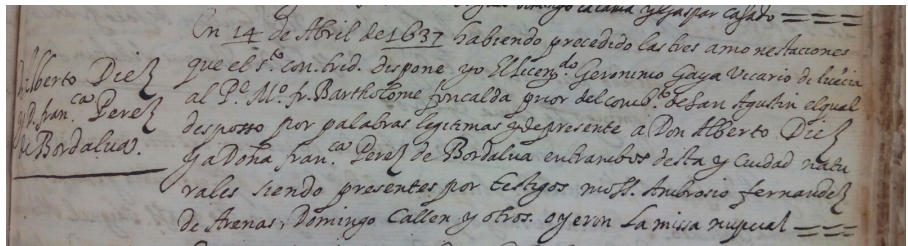 Domingo Lacasta y Gaspar Casado
En 14 de Abril de 1637 habiendo precedido las tres amonestaciones
que el s.to con. trid. dispone yo El licen.do Geronimo Gaya Vicario di licẽcia
al P.e M.o fr. Bartholome foncalda prior del comb.to de San Agustin el qual
desposso por palabras legitimas y de presente à Don Alberto Diez
y a Doña fran.ca Perez de Bordalua entrambos desta y Ciudad natu
rales siendo presentes por testigos moss. Ambrosio fernandez
de Arenas, Domingo Callen y otros. oyeron la missa nupcial
Alberto Diez
y D. fran.ca Perez
de Bordalua.